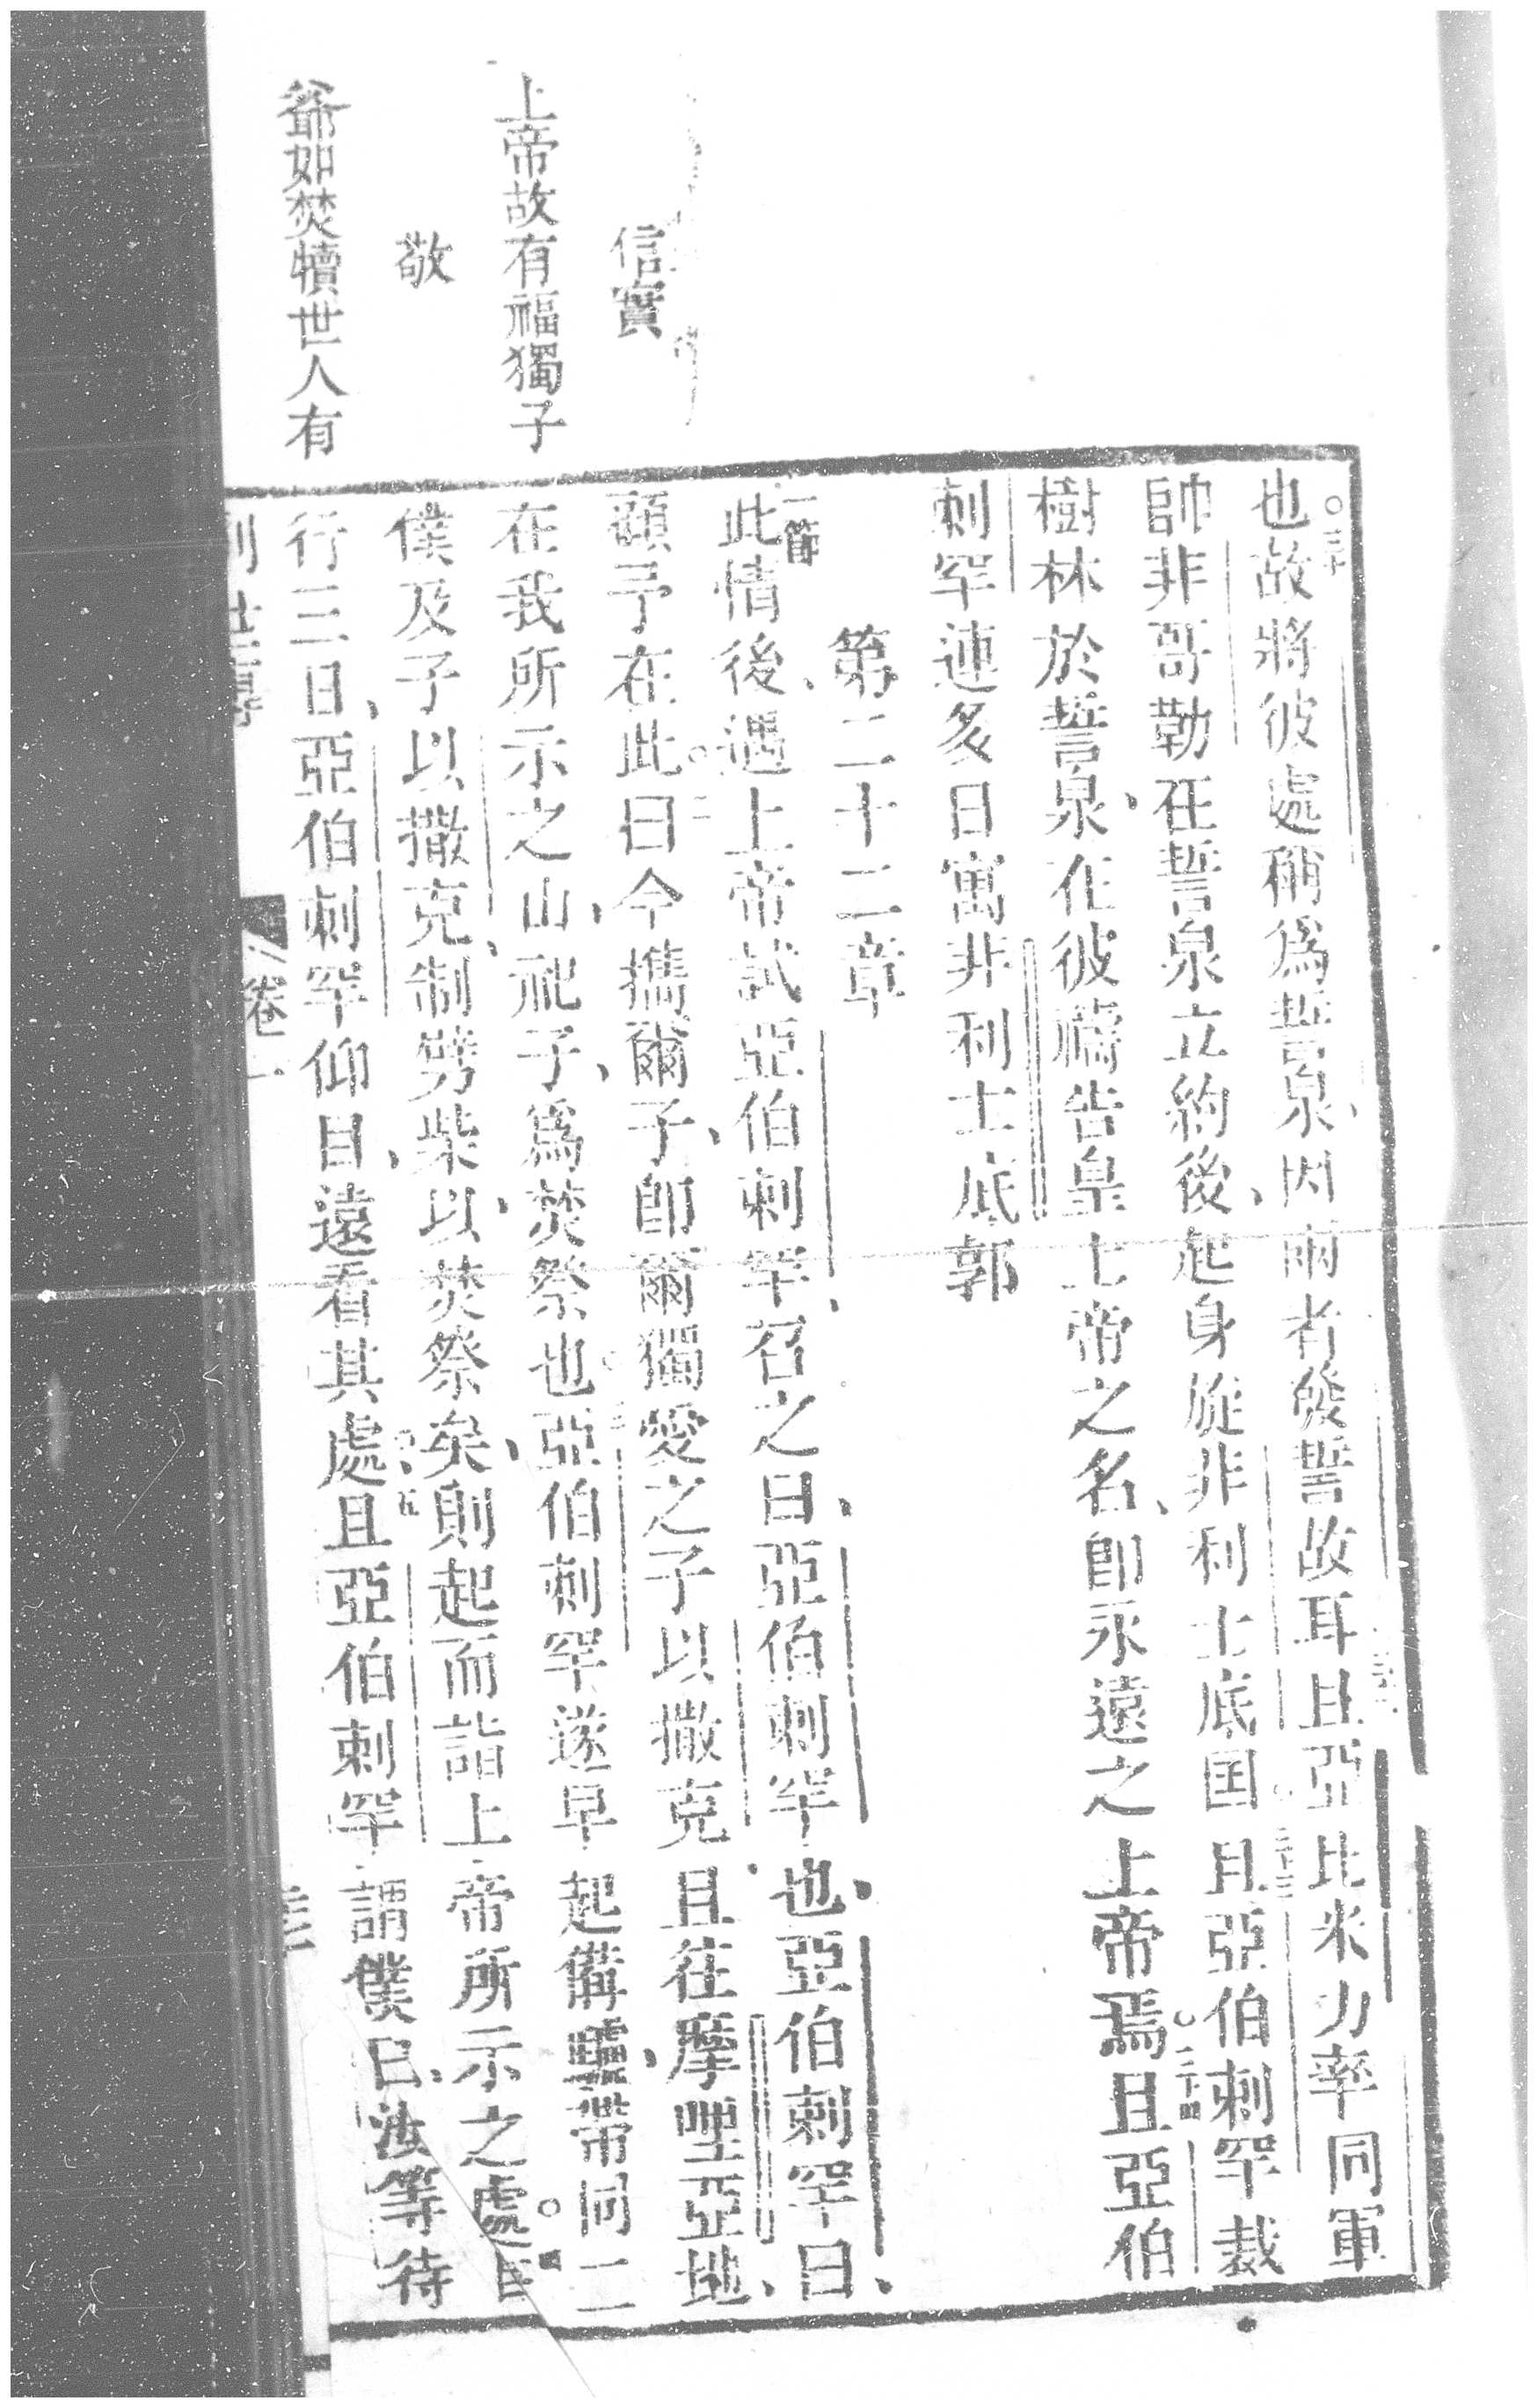 信實
上帝故有福獨子
敬
爺如焚犢世人有
也故將彼處稱爲誓泉因兩者發誓故耳且亞比米力率同軍
帥非哥勒在誓泉立約後起身旋非利士底国且亞伯剌罕裁
樹林於誓泉在彼禱告皇上帝之名即永遠之上帝焉且亞伯
剌罕連多日寓非利士底郭
第二十二章
一節
此情後遇上帝試亞伯剌罕召之曰亞伯剌罕也亞伯剌罕曰
顧予在此曰今攜爾子即爾獨愛之子以撒克且往摩哩亞地
在我所示之山祀子爲焚祭也亞伯剌罕遂早起備驢帶同二
僕及子以撒克制劈柴以焚祭矣則起而詣上帝所示之處
行三日亞伯剌罕仰目遠看其處且亞伯剌罕謂僕曰汝等待
卷一